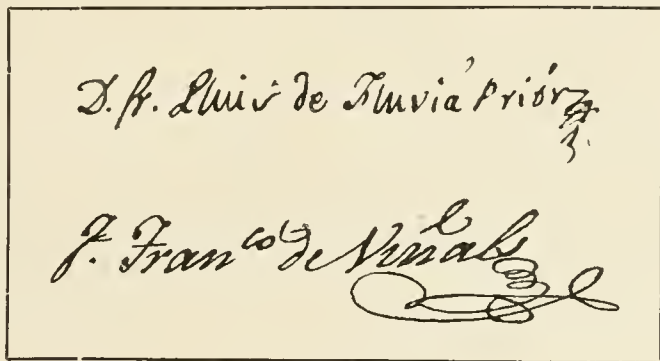 D. fr. Lluis de Fluvià Prior
F. Franco de Viñals